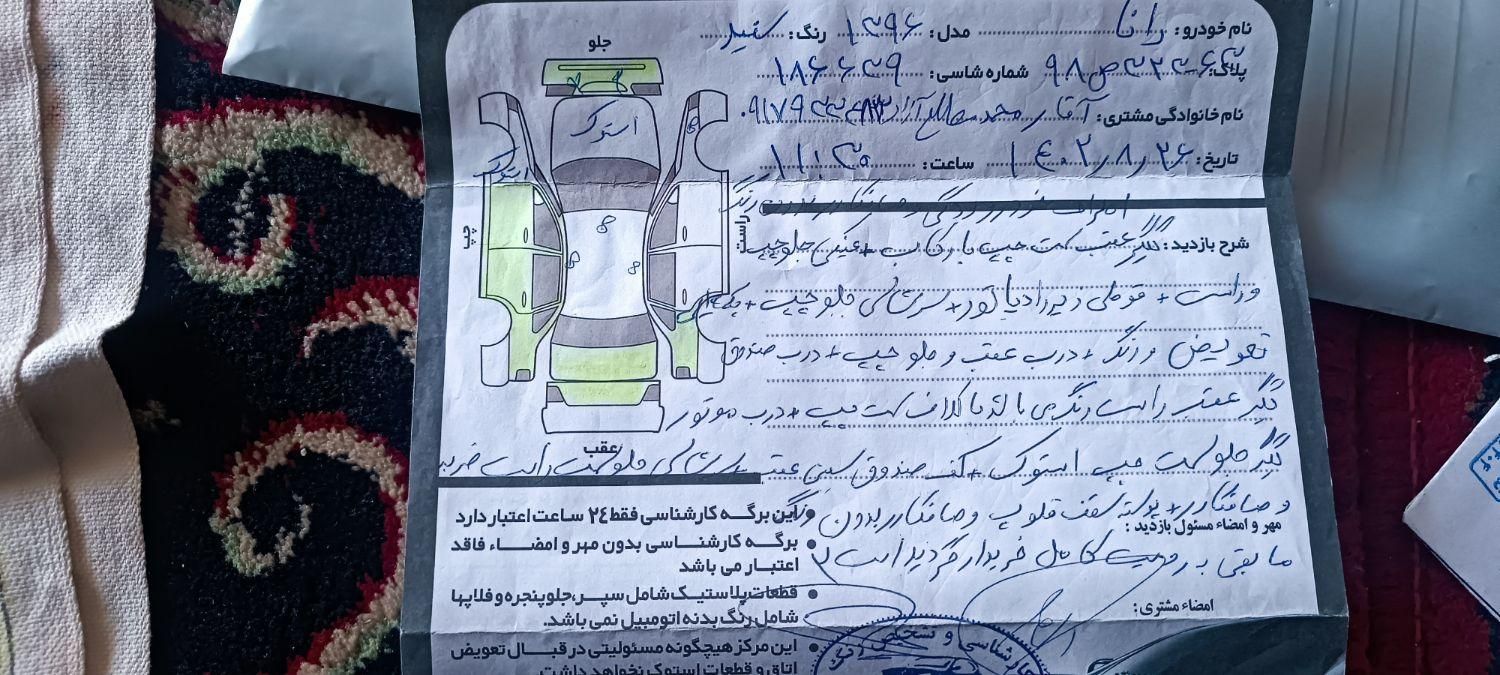 نام خودرو: رانا مدل: ۱۳۹۶ رنگ: سفید
پلاک: شماره شاسی: ۱۸۶۶۴۹
نام خانوادگی مشتری: آقای محمد
تاریخ: ۱۴۰۲/۸/۲۶ ساعت: ۱۱:۳۰
جلو
استوک
استوک
چپ
راست
عقب
شرح بازدید: گلگیر عقب سمت چپ با رکاب + سینی جلو چپ
و راست + قوطی زیر رادیاتور + سرشاسی جلو چپ +
تعویض و رنگ + درب عقب و جلو چپ + درب صندوق
گلگیر عقب راست رنگ می باشد + درب موتور
گلگیر جلو سمت چپ استوک + کف صندوق سینی عقب سرشاسی جلو سمت راست ضربه
و صافکاری + پوسته سقف قلوپ و صافکاری بدون رنگ
مابقی به رویت کامل خریدار گردیده است
مهر و امضاء مسئول بازدید:
امضاء مشتری:
● این برگه کارشناسی فقط ۲٤ ساعت اعتبار دارد
● برگه کارشناسی بدون مهر و امضاء فاقد
اعتبار می باشد
● قطعات پلاستیک شامل سپر، جلوپنجره و فلاپها
شامل رنگ بدنه اتومبیل نمی باشد.
● این مرکز هیچگونه مسئولیتی در قبال تعویض
اتاق و قطعات استوک نخواهد داشت.
کارشناسی و تشخیص رنگ